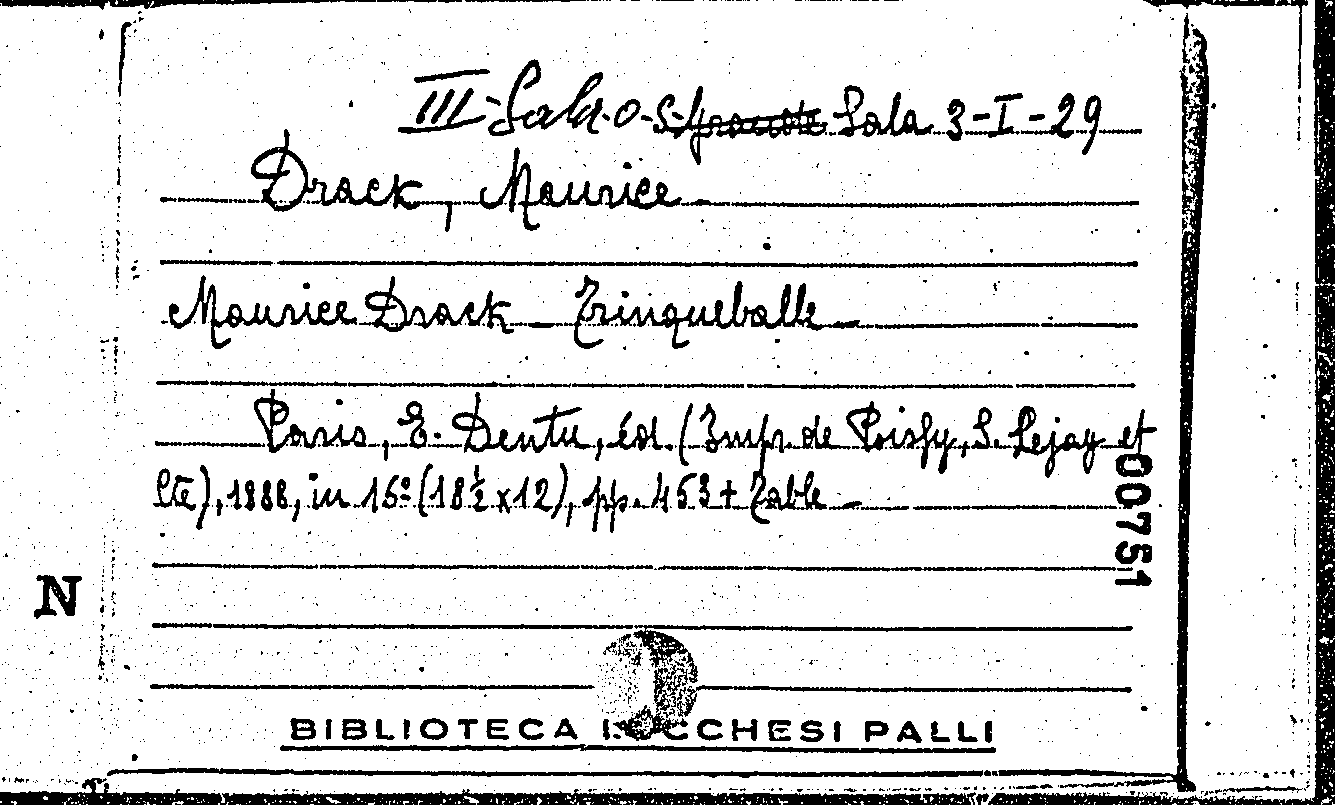 III-Sala. Sala 3-I-29
Drack, Maurice
Maurice Drack - Trinqueballe -
Paris, E. Dentu, éd. (Impr. de Poissy, S. Lejay et
Cie), 1888, in 16º (18½ x 12), pp. 453 + Table -
000751
N
BIBLIOTECA LUCCHESI PALLI